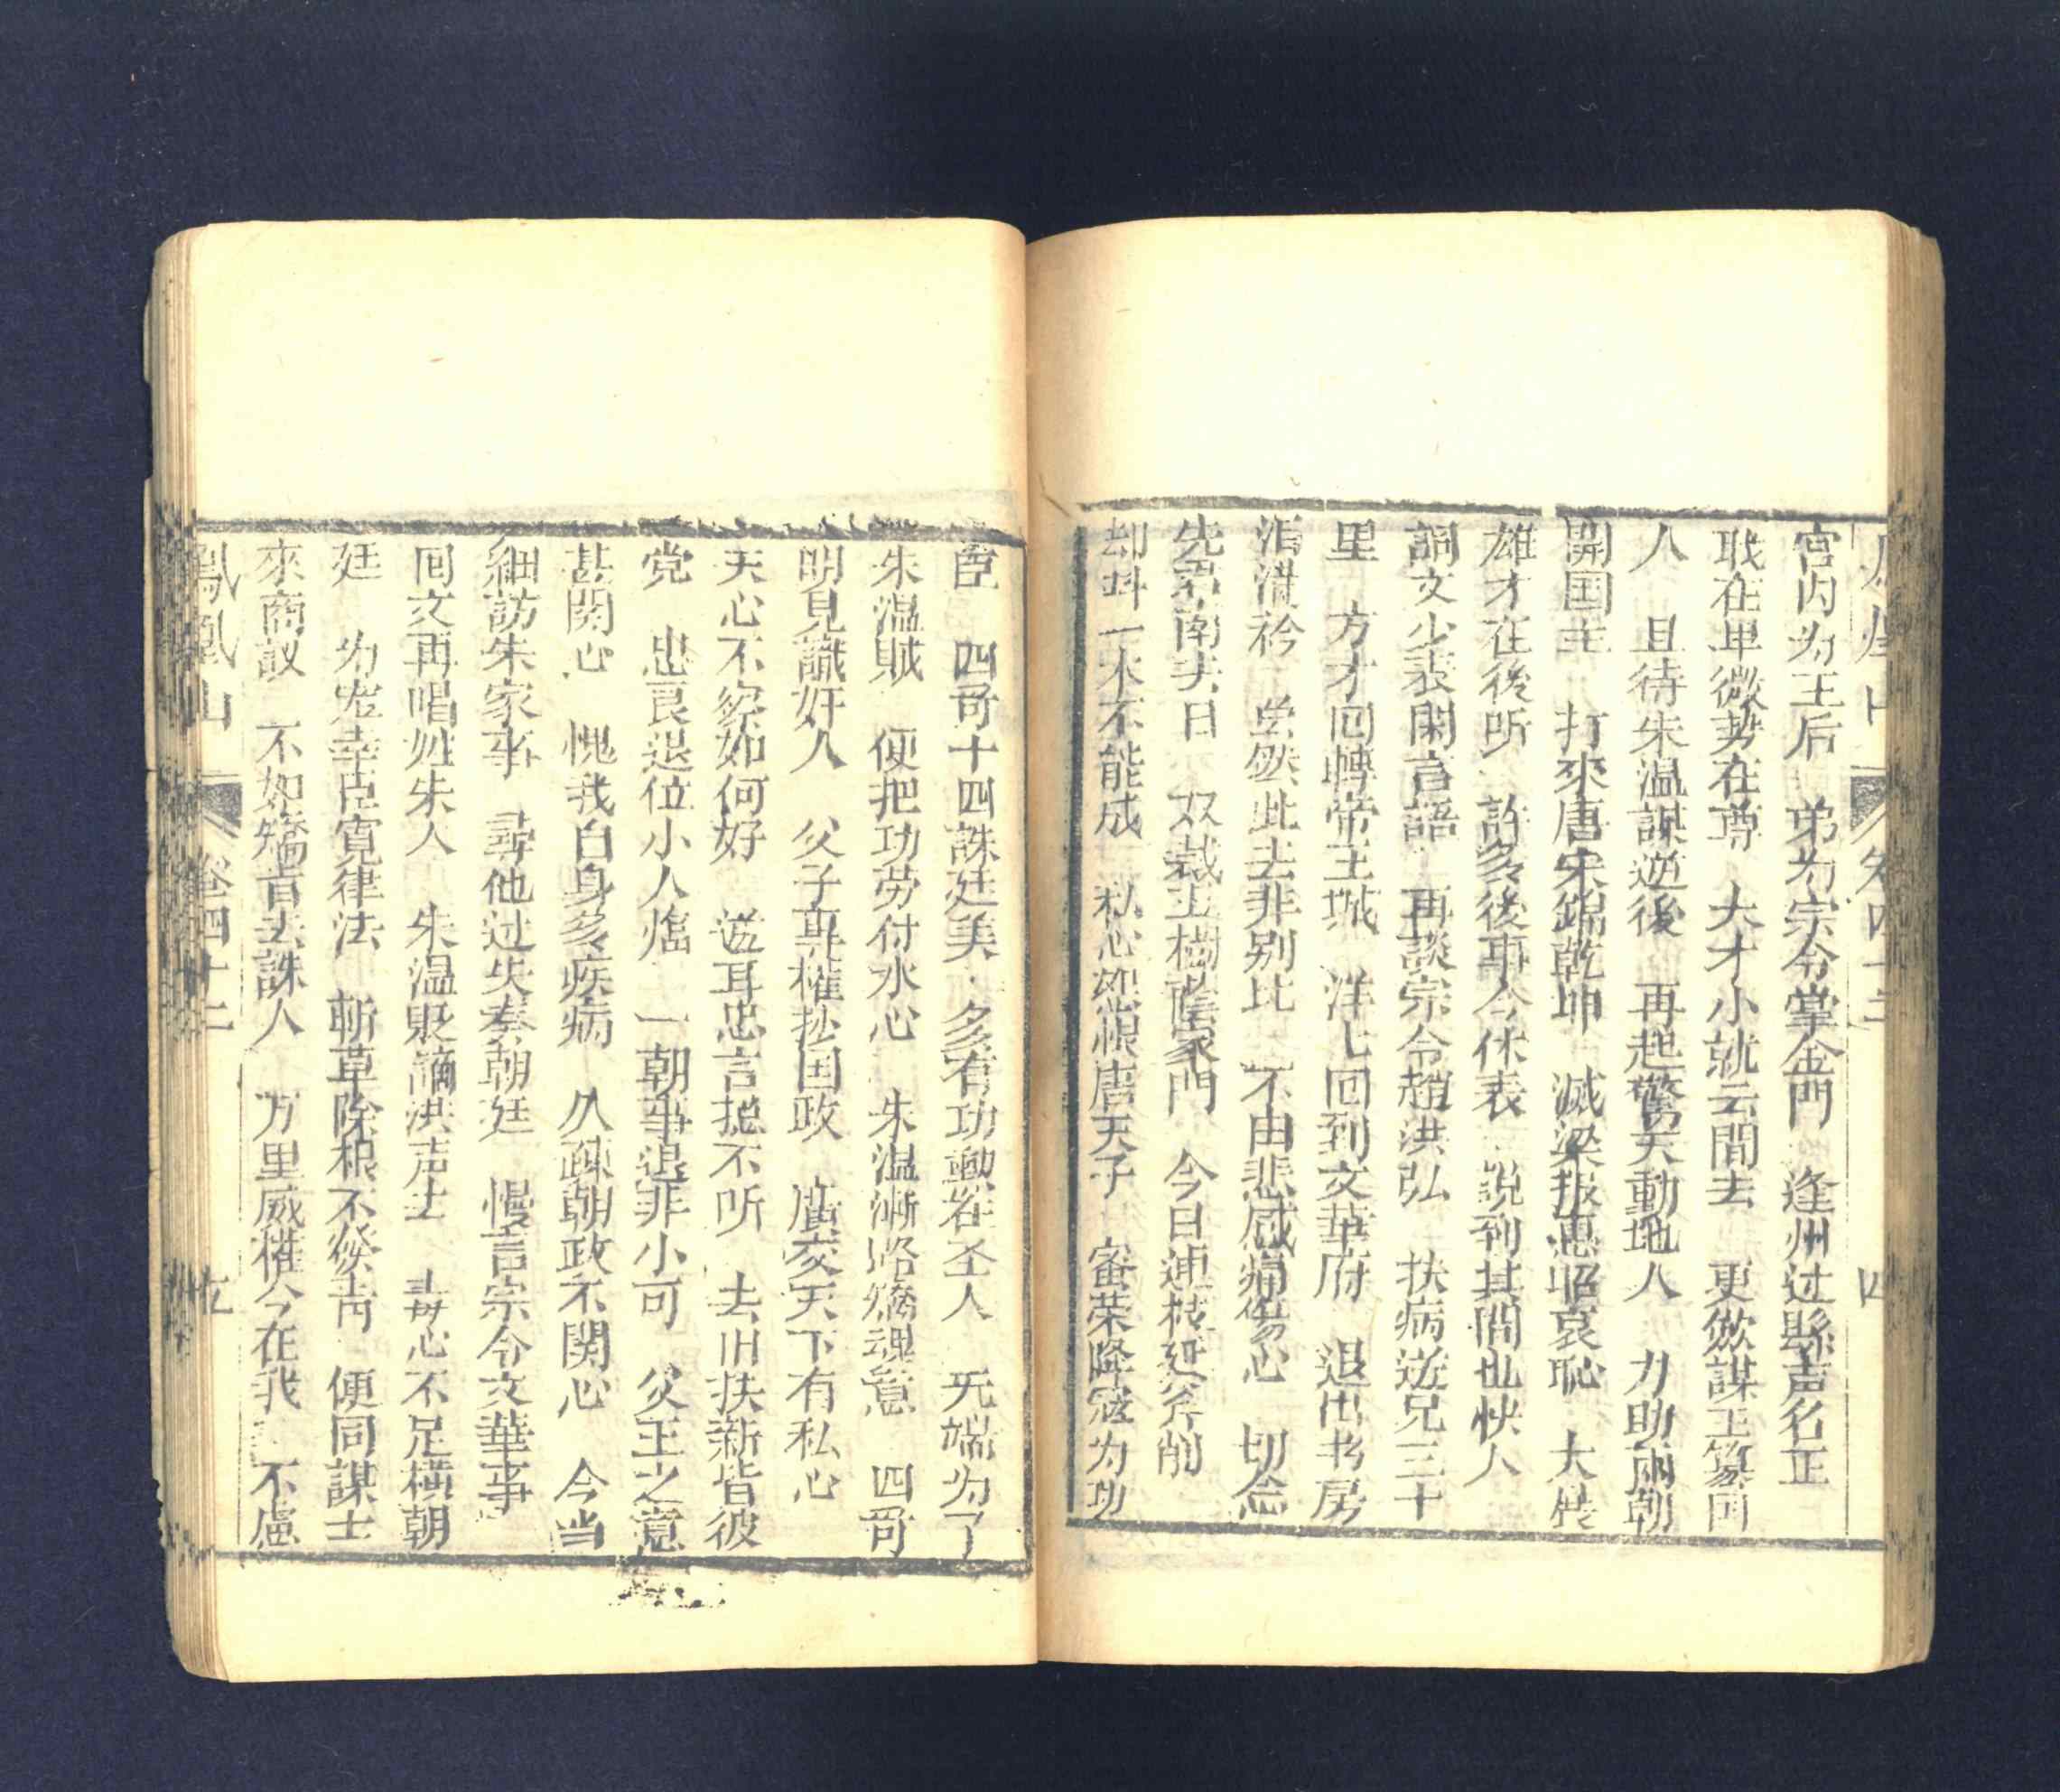 宮内为王后　弟为宗令掌金門　逢州过縣声名正
耿在卑微势在尊　大才小就云間去　更欲謀王篡囯
人　且待朱温謀逆後　再起驚天動地人　力助兩朝
開国主　打來唐宋錦乾坤　滅梁报惠昭哀恥　大
雄才在後听　許多後事今休表　說到其間也快人
詞文少表閑言語　再談宗令趙洪弘　扶病送兄三十
里　方才回轉帝王城　洋七回到文華府　退出书房
泪滑衿　此去非别比　不由悲感痛傷心　切念
先君南夫日　双栽玉樹家門　今日連枝延斧削
一木不能成　私心怨恨唐天子　寵為功
臣　四哥十四誅廷美　多有功勲在圣人　无端为了
朱温賊　便把功劳付水心　朱温漸路意　四哥
明見識奸人　父子專權抄国政　廣交天下有私心
天心不察如何好　逆耳忠言摠不听　去旧扶新皆彼
党　忠良退位小人臨　一朝事退非小可　父王之意
甚関心　愧我白身多疾病　久疎朝政不関心　今当
細訪朱家事　尋他过失奏朝廷　慢言宗令文華事
回文再唱姓朱人　朱温貶謫洪声士　毒心不足横朝
廷　为宠幸臣寛律法　斬草除根不發青　便同謀士
來商議　不如矯旨去誅人　万里威權今在我　不慮
鳳凰山　卷四十二　五